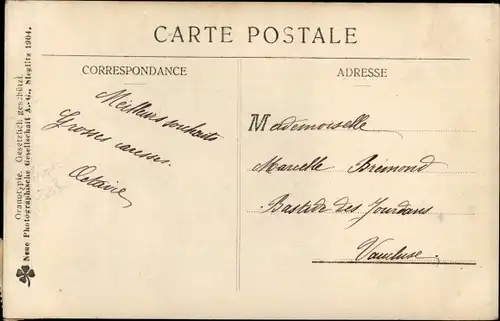 CARTE POSTALE
CORRESPONDANCE
Meilleurs souhaits
Grosses caresses.
Octavie
ADRESSE
Mademoiselle
Marcelle Brémond
Bastide des Jourdans
Vaucluse.
Oranotypie. Gesetzlich geschützt.
Neue Photographische Gesellschaft A.-G., Steglitz 1904.